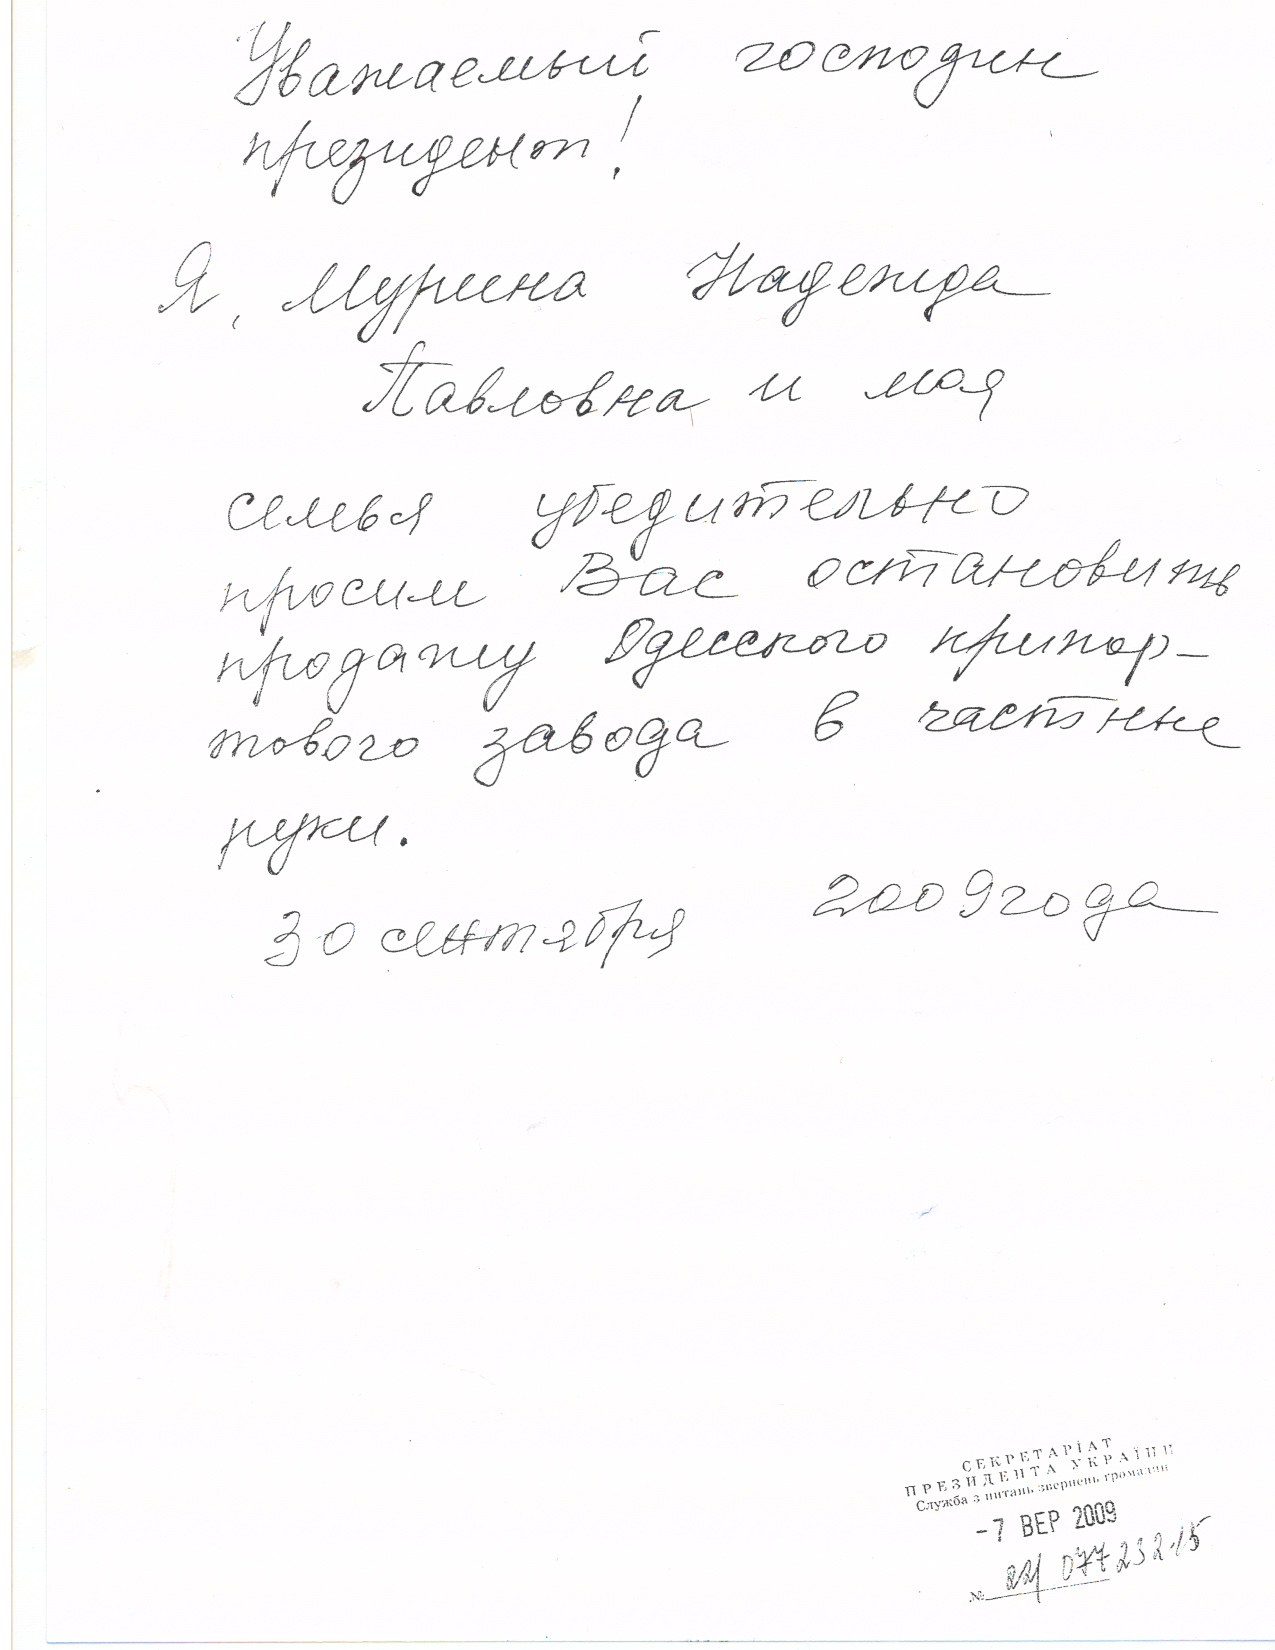 Уважаемый господин
президент!
Я, Мурина Надежда
Павловна и моя
семья убедительно
просим Вас остановить
продажу Одесского припор-
тового завода в частные
руки.
30 сентября 2009 года
СЕКРЕТАРІАТ
ПРЕЗИДЕНТА УКРАЇНИ
Служба з питань звернень громадян
-7 ВЕР 2009
№ 22/077232-15